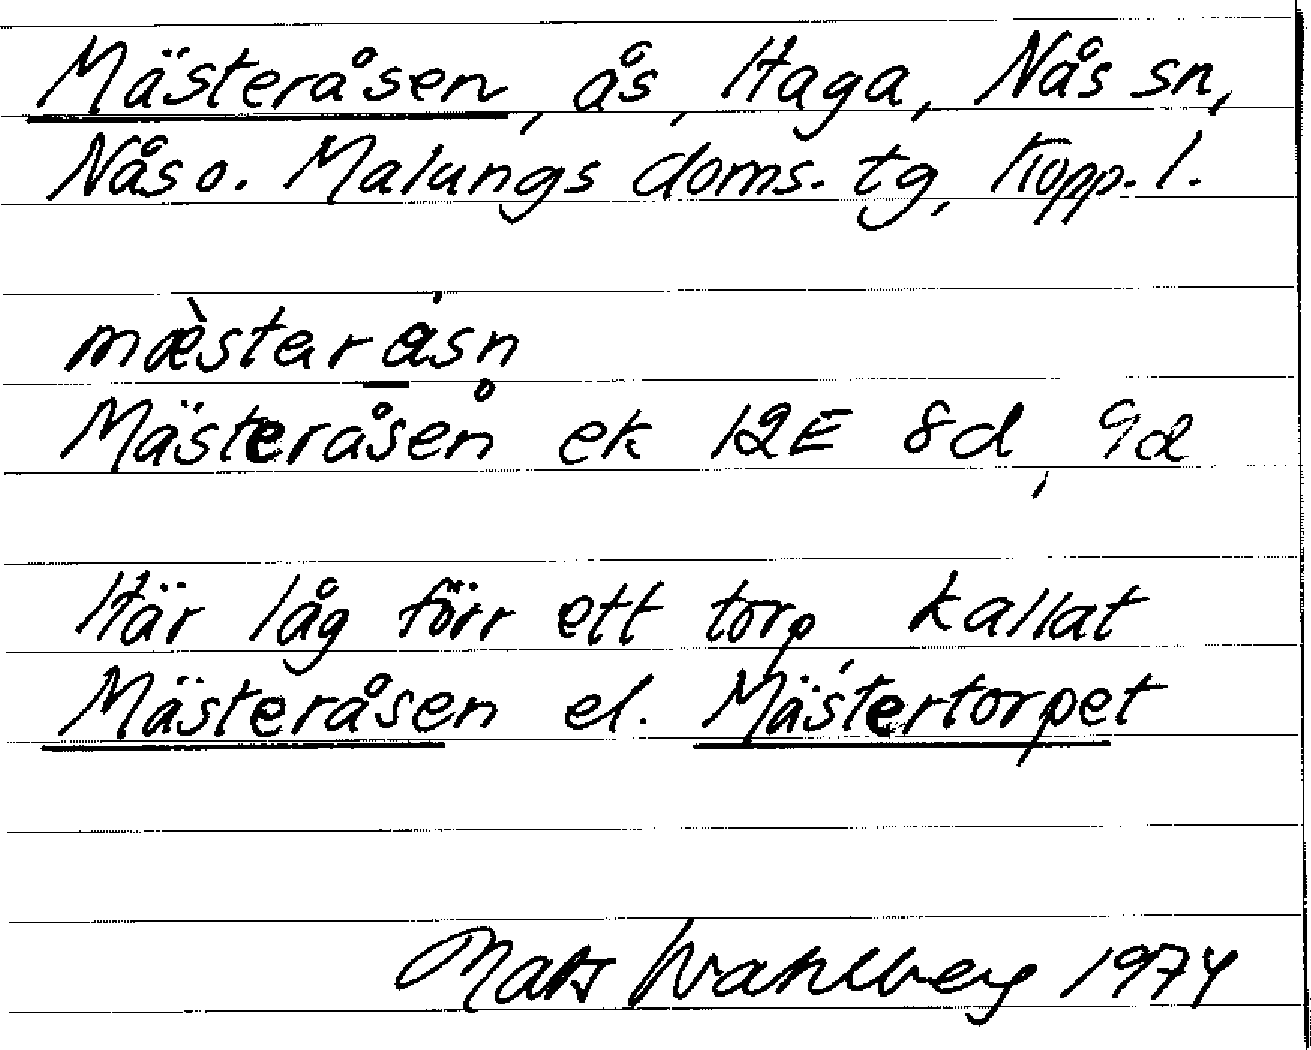 Mästeråsen, ås, Haga, Nås sn,
Nås o. Malungs doms. tg, Kopp. l.
mæ̀stər ásn
Mästeråsen ek 12E 8d, 9d
Här låg förr ett torp kallat
Mästeråsen el. Mästertorpet
Mats Wahlberg 1974